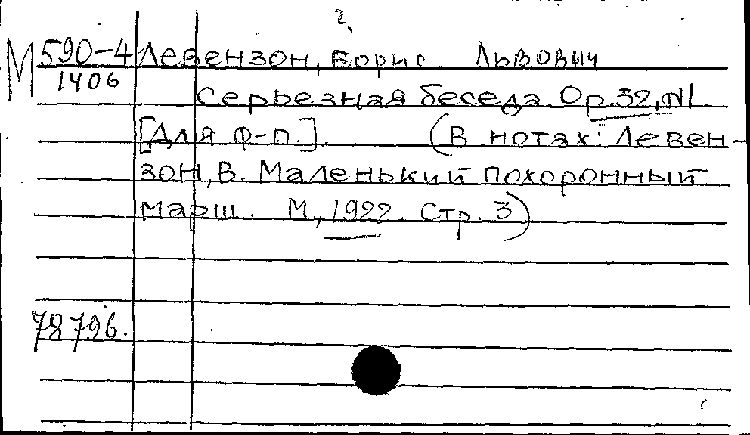 2.
М 590-4 Левензон, Борис Львович
1406
Серьезная беседа. Op.32, N1.
[Для ф-п.]. (В нотах: Левен-
зон, Б. Маленький похоронный
марш. М, 1922. Стр. 3)
78796.